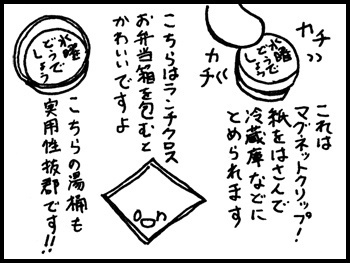 カチ
カチ
水曜
どうで
しょう
これは
マグネットクリップ！
紙をはさんで
冷蔵庫などに
とめられます
こちらはランチクロス
お弁当箱を包むと
かわいいですよ
on
水曜
どうで
しょう
こちらの湯桶も
実用性抜群です!!